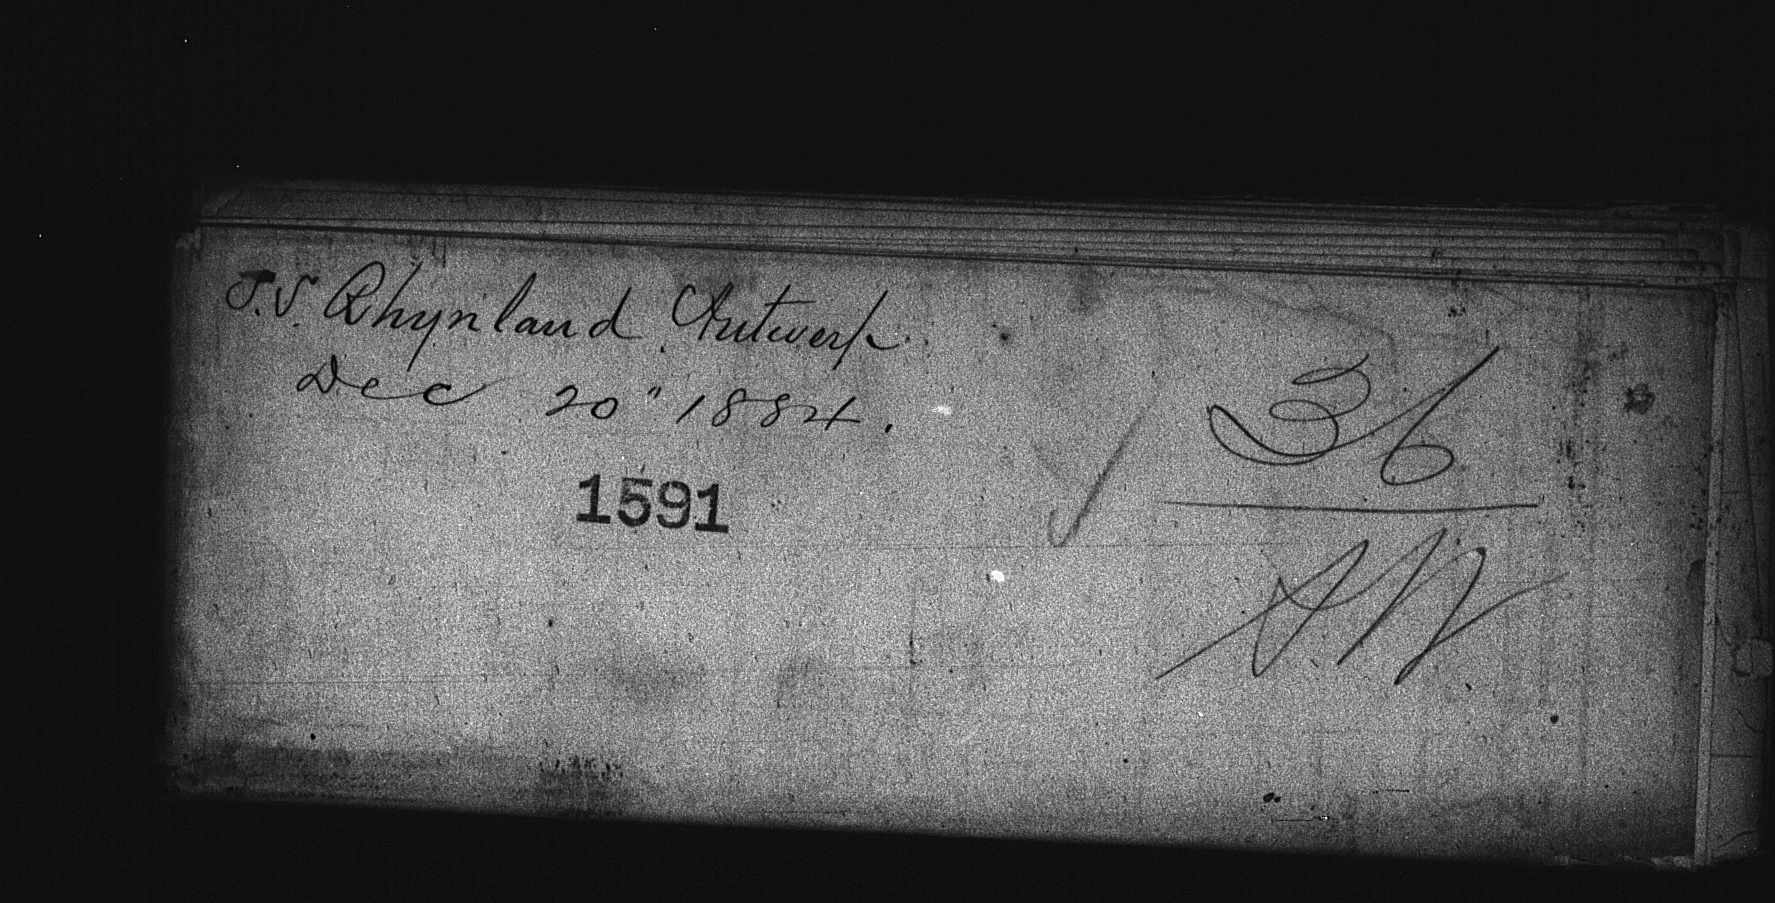 S.S. Rhynland Antwerp.
Dec 20" 1884.
1591
36